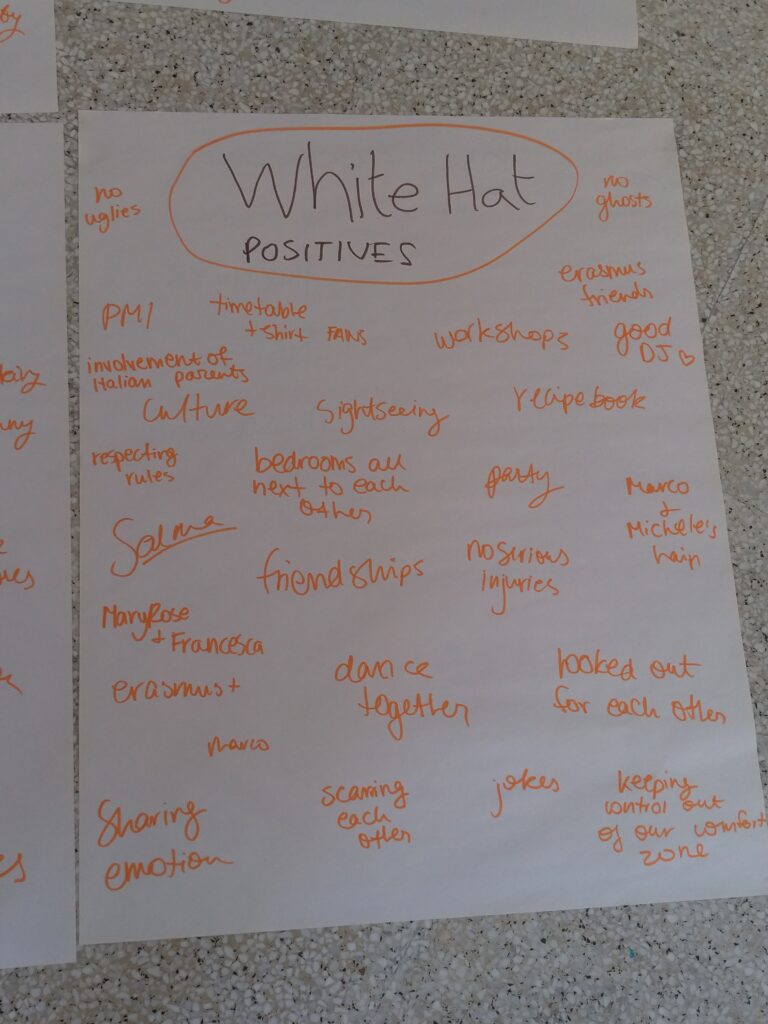 White Hat
POSITIVES
no
uglies
no
ghosts
erasmus
friends
PM1
timetable
+ tshirt FANS
workshops
good
DJ ♡
involvement of
Italian parents
culture
sightseeing
recipe book
respecting
rules
bedrooms all
next to each
other
party
Marco
+
Michele's
hair
Salma
friendships
no serious
injuries
MaryRose
+ Francesca
erasmus+
dance
together
looked out
for each other
marco
Sharing
emotion
scaring
each
other
jokes
keeping
control out
of our comfort
zone